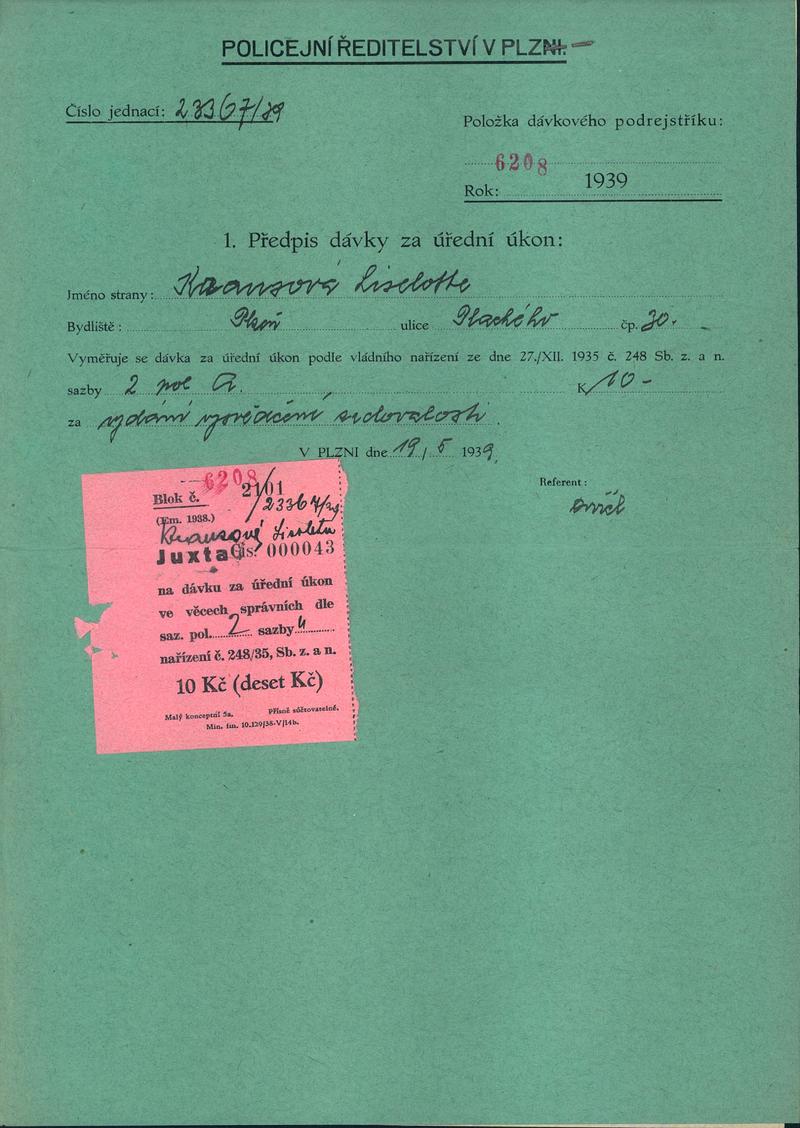 POLICEJNÍ ŘEDITELSTVÍ V PLZNI.
Číslo jednací: 23367/39
Položka dávkového podrejstříku:
6208
Rok: 1939
1. Předpis dávky za úřední úkon:
Jméno strany: Krausová Liselotte
Bydliště: Plzeň ulice Plachého čp. 30.
Vyměřuje se dávka za úřední úkon podle vládního nařízení ze dne 27./XII. 1935 č. 248 Sb. z. a n.
sazby 2 pol A. K 10-
za vydání vysvědčení zachovalosti.
V PLZNI dne 19/5 1939.
Referent:
6208
Blok č. 2101
(Em. 1938.) 23367/39
Krausová Liselotta
Juxta Čís. 000043
na dávku za úřední úkon
ve věcech správních dle
saz. pol. 2 sazby
nařízení č. 248/35, Sb. z. a n.
10 Kč (deset Kč)
Malý konceptní 5a. Přísně súčtovatelné.
Min. fin. 10.129/38-V/14b.